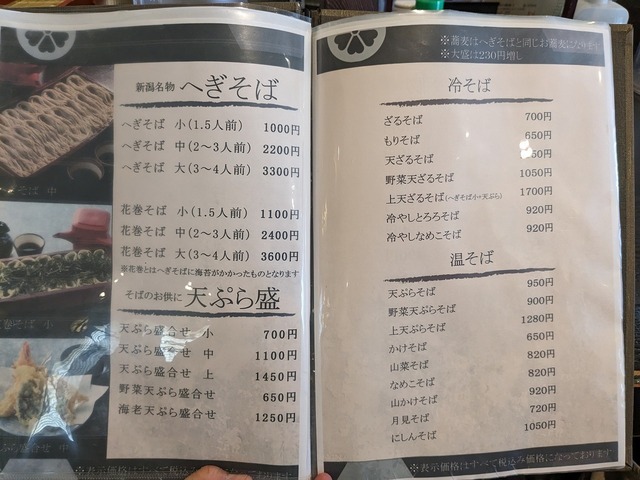 新潟名物 へぎそば
へぎそば 小(1.5人前) 1000円
へぎそば 中(2〜3人前) 2200円
へぎそば 大(3〜4人前) 3300円
花巻そば 小(1.5人前) 1100円
花巻そば 中(2〜3人前) 2400円
花巻そば 大(3〜4人前) 3600円
※花巻とはへぎそばに海苔がかかったものとなります
そばのお供に 天ぷら盛
天ぷら盛合せ 小 700円
天ぷら盛合せ 中 1100円
天ぷら盛合せ 上 1450円
野菜天ぷら盛合せ 650円
海老天ぷら盛合せ 1250円
そば 中
巻そば 小
ぷら盛合せ 中
※表示価格はすべて税込み価格になっております
※蕎麦はへぎそばと同じお蕎麦になります
※大盛は230円増し
冷そば
ざるそば 700円
もりそば 650円
天ざるそば 50円
野菜天ざるそば 1050円
上天ざるそば(へぎそば小+天ぷら) 1700円
冷やしとろろそば 920円
冷やしなめこそば 920円
温そば
天ぷらそば 950円
野菜天ぷらそば 900円
上天ぷらそば 1280円
かけそば 650円
山菜そば 820円
なめこそば 820円
山かけそば 920円
月見そば 720円
にしんそば 1050円
※表示価格はすべて税込み価格になっております